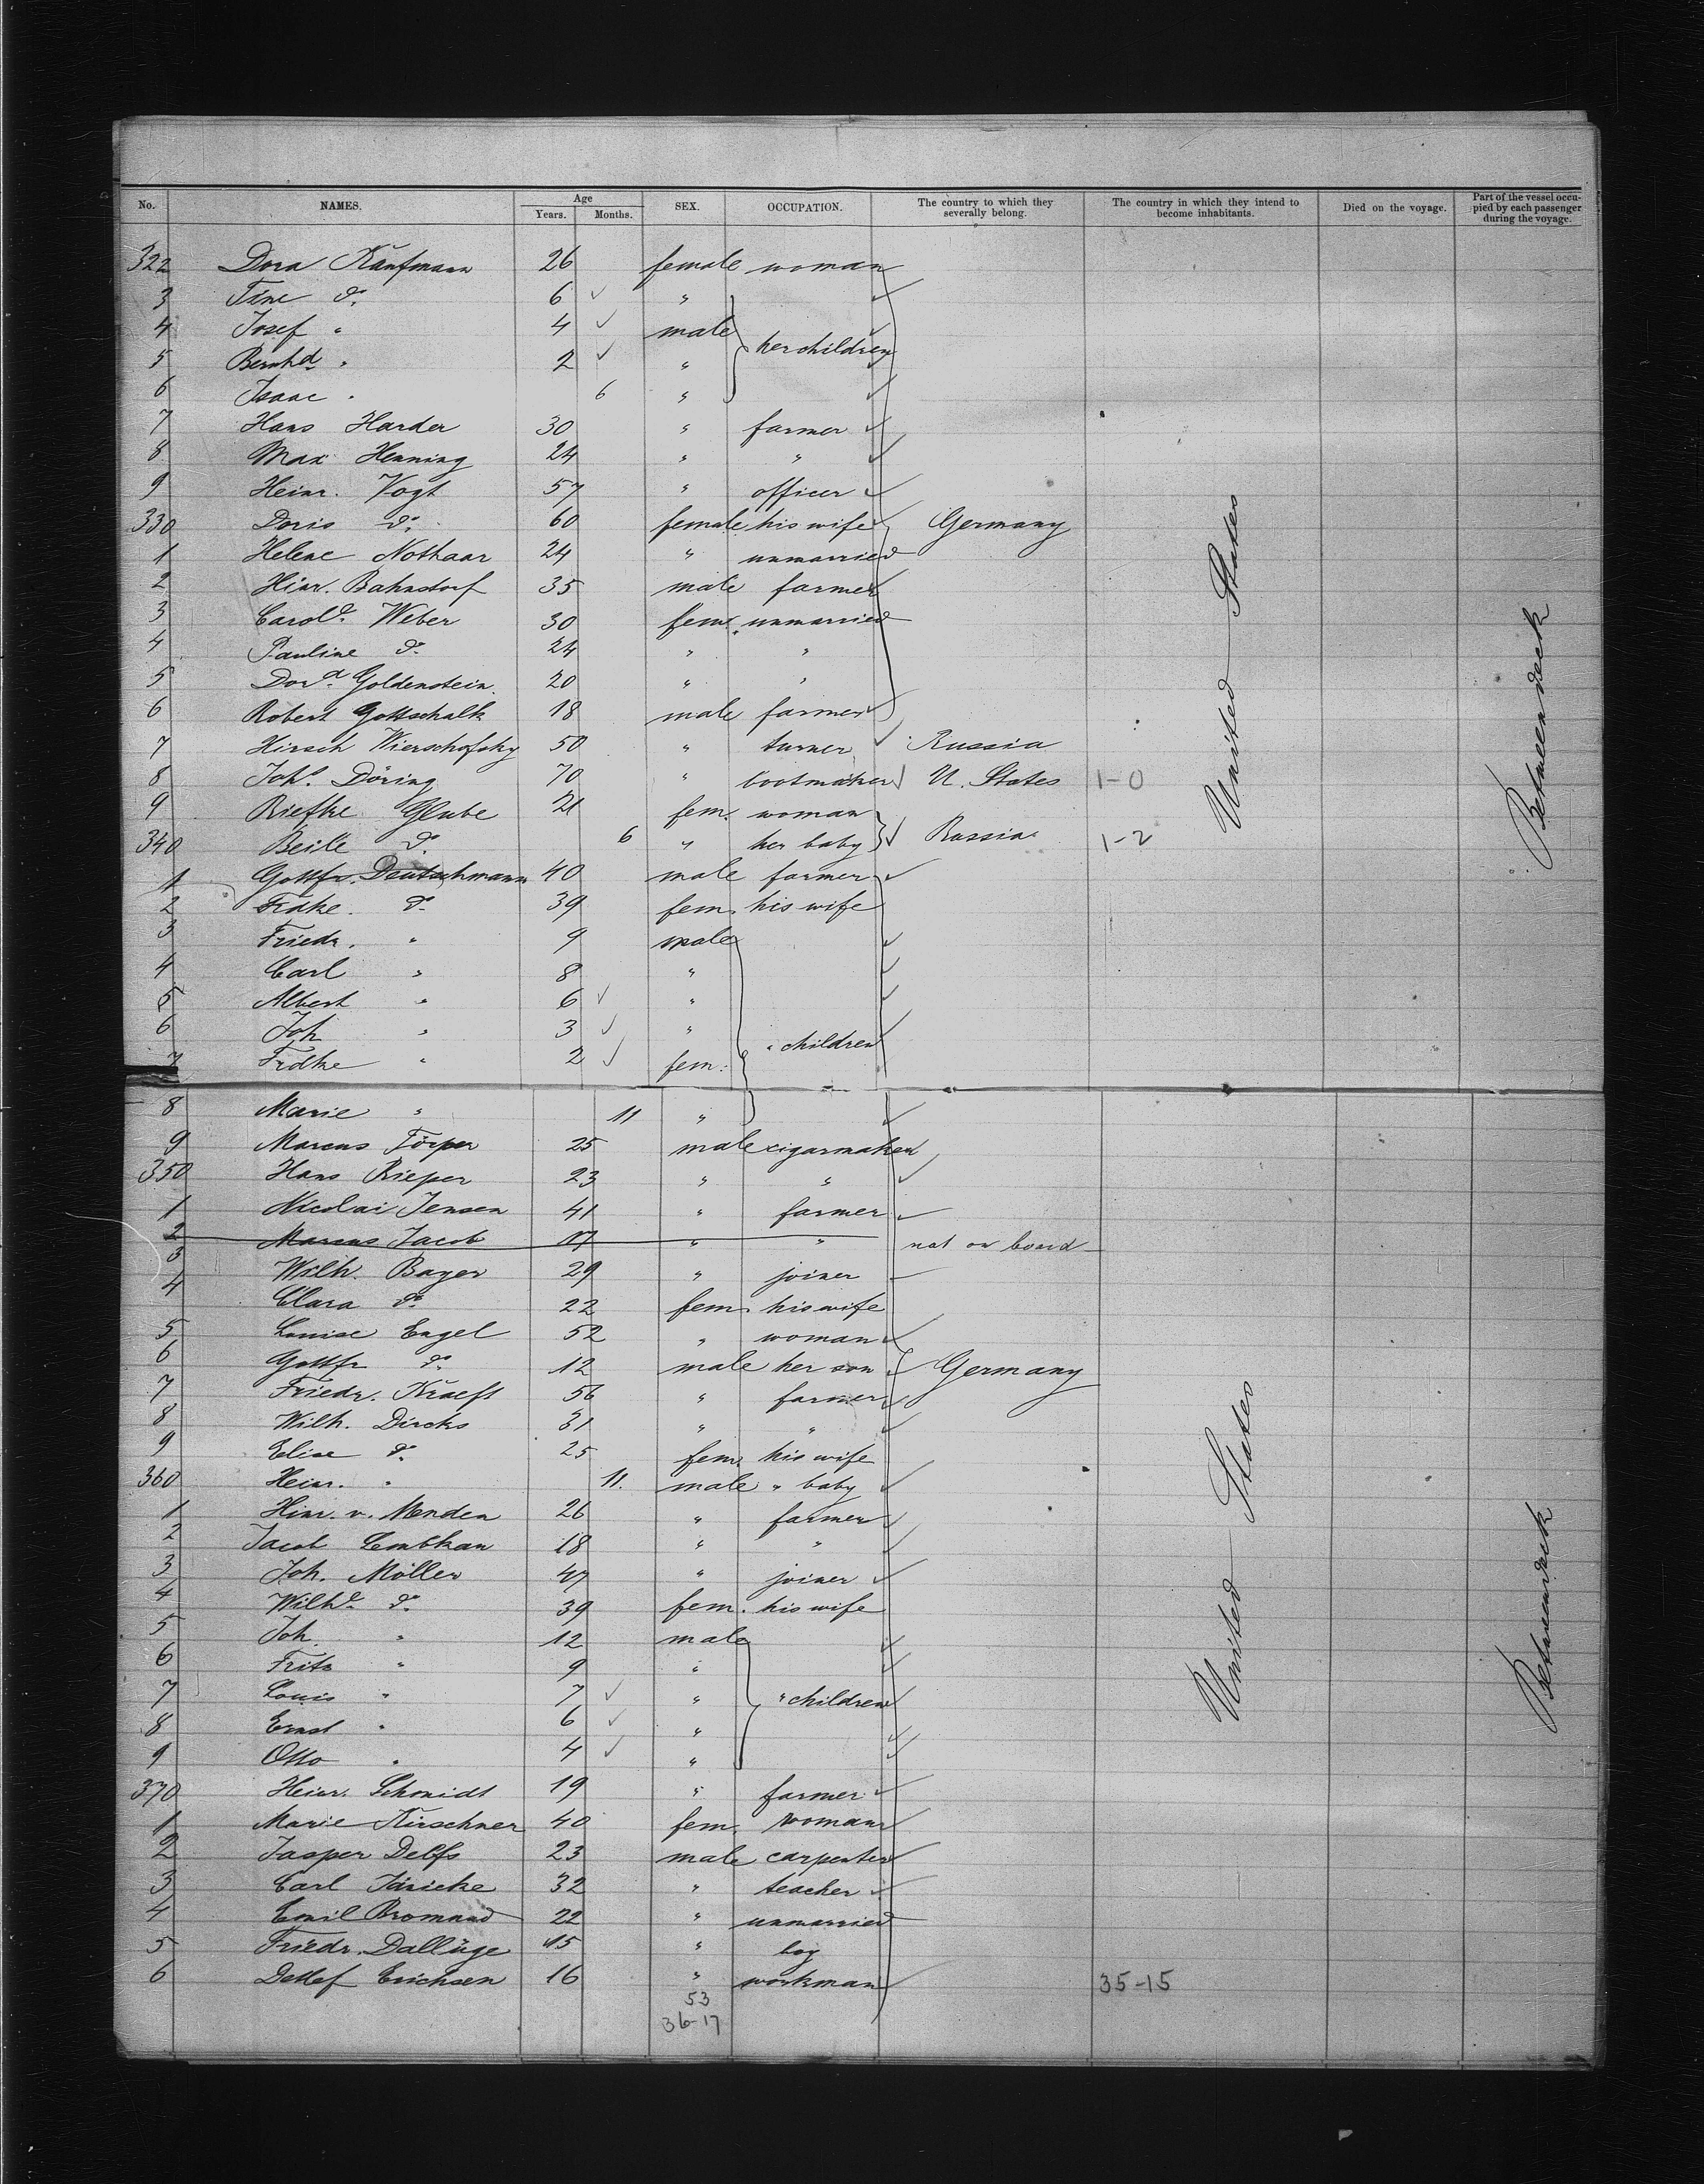 No. NAMES. Age Years. Months. SEX. OCCUPATION. The country to which they severally belong. The country in which they intend to become inhabitants. Died on the voyage. Part of the vessel occupied by each passenger during the voyage.
322 Dora Kaufmann 26 female woman
3 Tine do. 6 "
4 Josef " 4 male her children
5 Bernhd. " 2 "
6 Isaac " 6 "
7 Hans Harder 30 " farmer
8 Max Henning 24 " "
9 Heinr. Vogt 57 " officer
330 Doris do. 60 female his wife Germany
1 Helene Nothaar 24 " unmarried
2 Hinr. Bahnstorf 35 male farmer
3 Carole. Weber 30 fem. unmarried
4 Pauline do. 24 " "
5 Dora. Goldenstein 20 " "
6 Robert Gottschalk 18 male farmer
7 Hirsch Wierschofsky 50 " turner Russia
8 Johs. Döring 70 " bootmaker U. States 1-0
9 Riefke Glube 21 fem. woman
340 Beile do. 6 " her baby Russia 1-2
1 Gottfr. Deutschmann 40 male farmer
2 Frdke. do. 39 fem. his wife
3 Friedr. " 9 male
4 Carl " 8 "
5 Albert " 6 "
6 Joh " 3 " " children
7 Frdke " 2 fem.
United States
Between deck
8 Marie " 11 "
9 Marcus Törper 25 male cigarmaker
350 Hans Rieper 23 " "
1 Nicolai Jensen 41 " farmer
2 Marcus Jacob 17 " " not on board
3 Wilh. Bayer 29 " joiner
4 Clara do. 22 fem. his wife
5 Louise Engel 52 " woman
6 Gottfr do. 12 male her son Germany
7 Friedr. Kraeft 56 " farmer
8 Wilh. Dircks 31 " "
9 Elise do. 25 fem. his wife
360 Heinr. " 11. male " baby
1 Hinr. v. Menden 26 " farmer
2 Jacob 18 " "
3 Joh. Möller 47 " joiner
4 Wilhe. do. 39 fem. his wife
5 Joh. " 12 male
6 Fritz " 9 "
7 Louis " 7 " " children
8 Ernst " 6 "
9 Otto " 4 "
370 Heinr. Schmidt 19 " farmer
1 Marie Kirschner 40 fem. woman
2 Jasper Delfs 23 male carpenter
3 Carl Jänicke 32 " teacher
4 Emil 22 " unmarried
5 Friedr. Dallüge 15 " boy
6 Detlef Erichsen 16 " workman 35-15
United States
Betweendeck
53
36-17